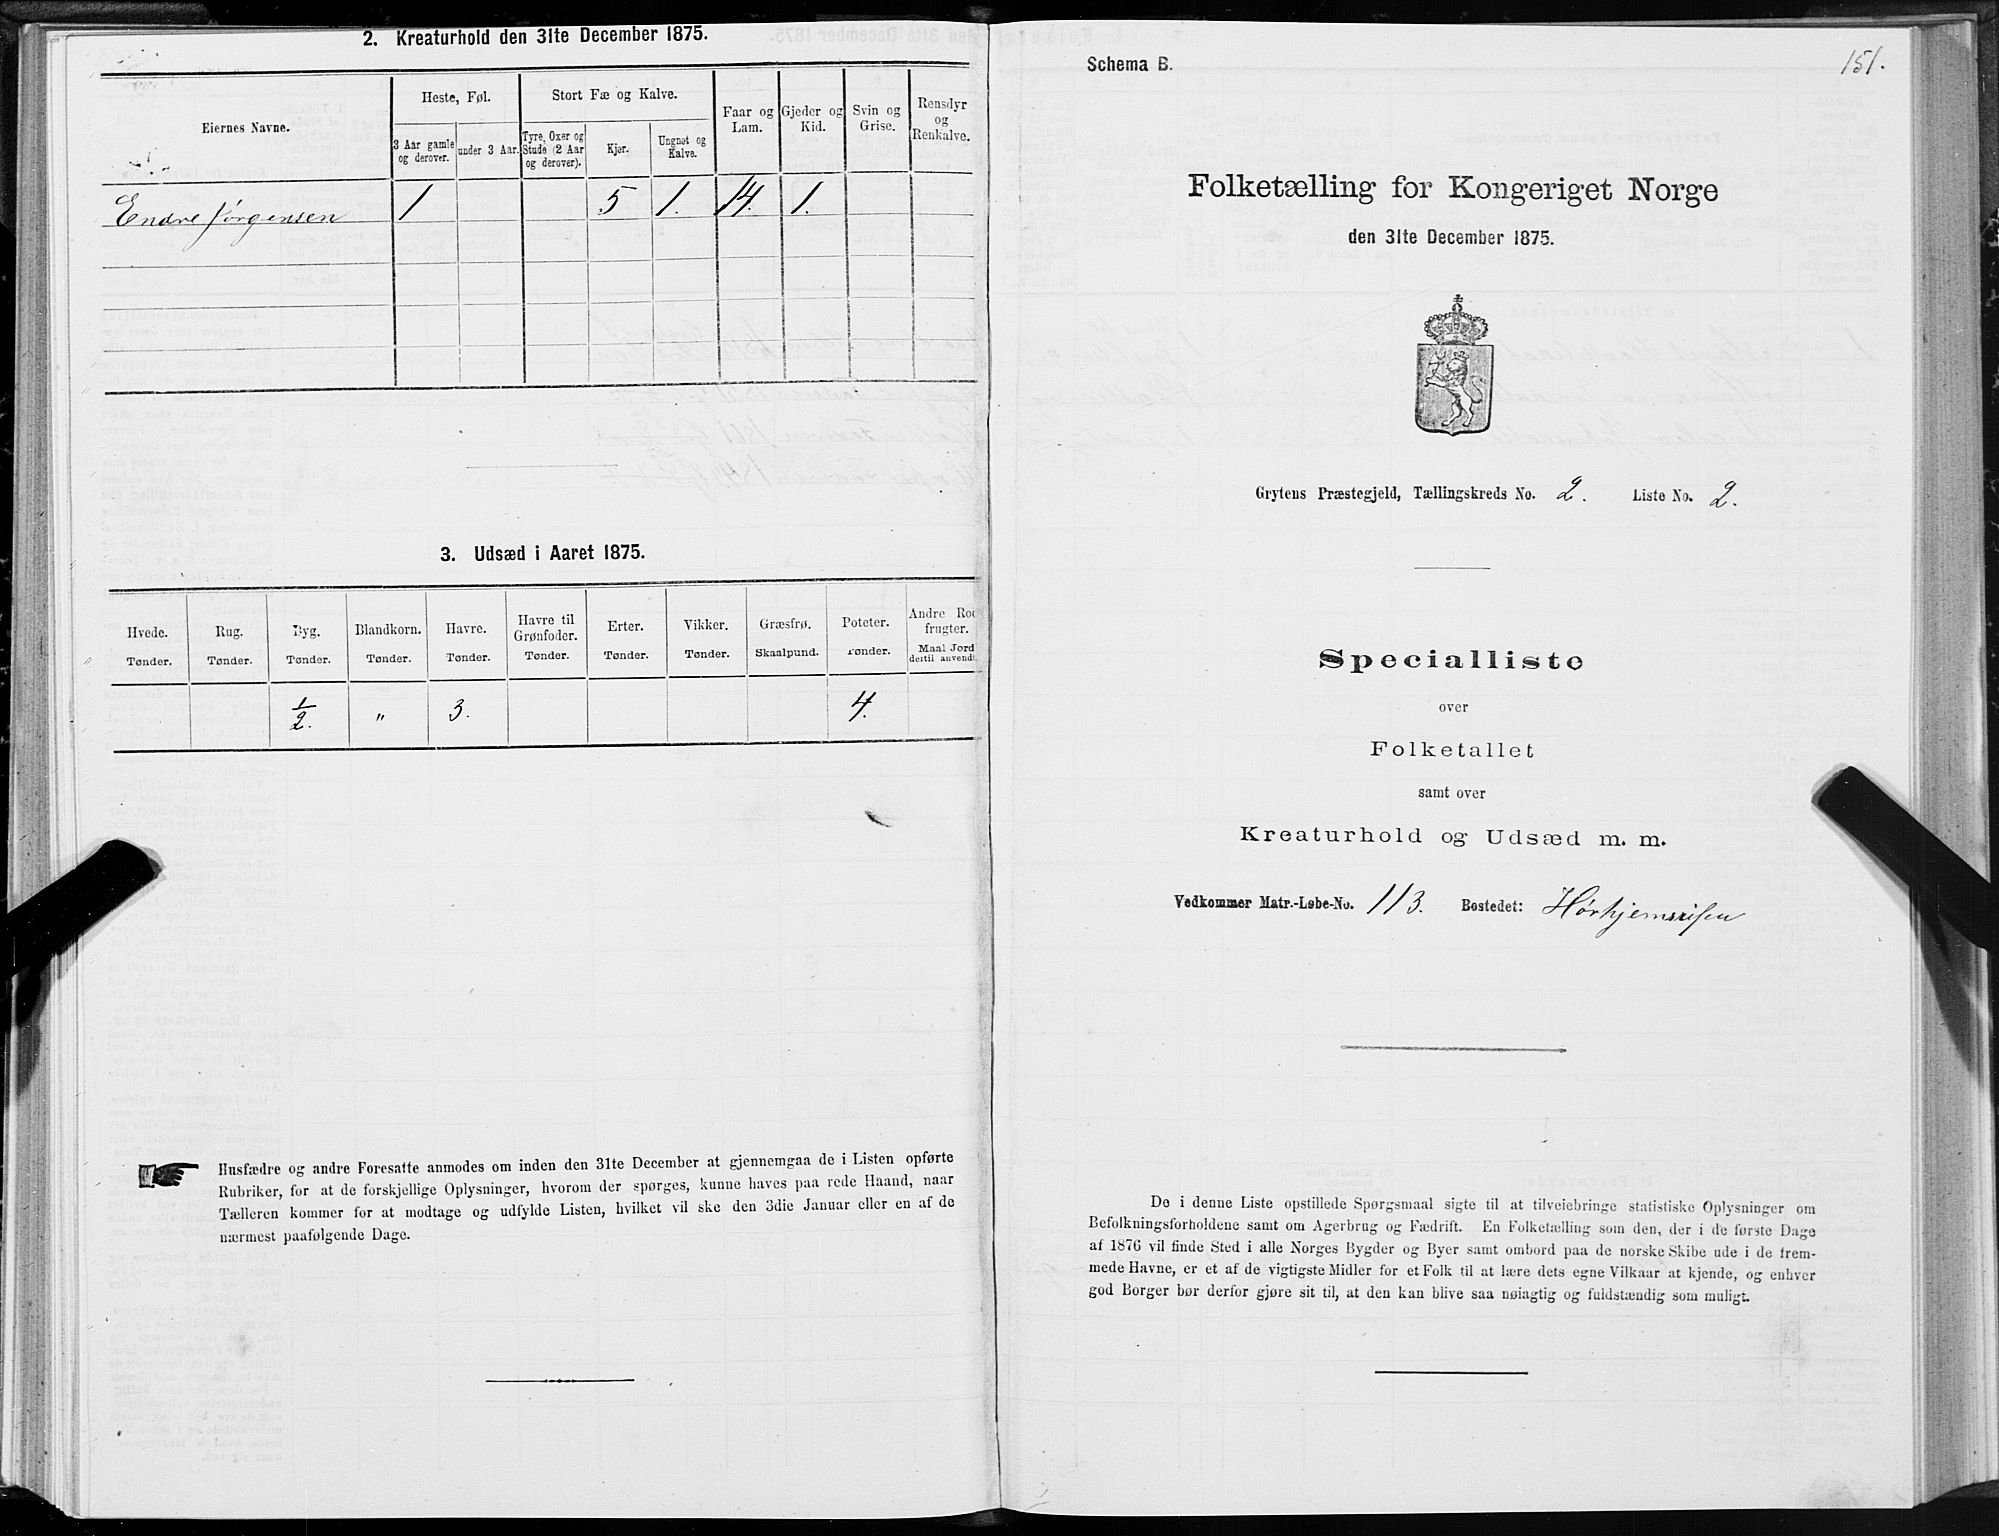 2. Kreaturhold den 31te December 1875.
Eiernes Navne.
Heste, Føl.
Stort Fæ og Kalve.
Faar og Lam.
Gjeder og Kid.
Svin og Grise.
Rensdyr og Renkalve.
3 Aar gamle og derover.
under 3 Aar.
Tyre, Oxer og Stude (2 Aar og derover).
Kjør.
Ungnøt og Kalve.
Endre Jørgensen 1 5 1. 14. 1.
3. Udsæd i Aaret 1875.
Hvede. Rug. Byg. Blandkorn. Havre. Havre til Grønfoder. Erter. Vikker. Græsfrø. Poteter. Andre Rodfrugter.
Tønder. Tønder. Tønder. Tønder. Tønder. Tønder. Tønder. Tønder. Skaalpund. Tønder. Maal Jord dertil anvendt.
1/2. " 3. 4.
Husfædre og andre Foresatte anmodes om inden den 31te December at gjennemgaa de i Listen opførte
Rubriker, for at de forskjellige Oplysninger, hvorom der spørges, kunne haves paa rede Haand, naar
Tælleren kommer for at modtage og udfylde Listen, hvilket vil ske den 3die Januar eller en af de
nærmest paafølgende Dage.
Schema B.
151.
Folketælling for Kongeriget Norge
den 31te December 1875.
Grytens Præstegjeld, Tællingskreds No. 2. Liste No. 2.
Specialliste
over
Folketallet
samt over
Kreaturhold og Udsæd m. m.
Vedkommer Matr.-Løbe-No. 113. Bostedet: Hørhjemsrisen
De i denne Liste opstillede Spørgsmaal sigte til at tilveiebringe statistiske Oplysninger om
Befolkningsforholdene samt om Agerbrug og Fædrift. En Folketælling som den, der i de første Dage
af 1876 vil finde Sted i alle Norges Bygder og Byer samt ombord paa de norske Skibe ude i de frem-
mede Havne, er et af de vigtigste Midler for et Folk til at lære dets egne Vilkaar at kjende, og enhver
god Borger bør derfor gjøre sit til, at den kan blive saa nøiagtig og fuldstændig som muligt.